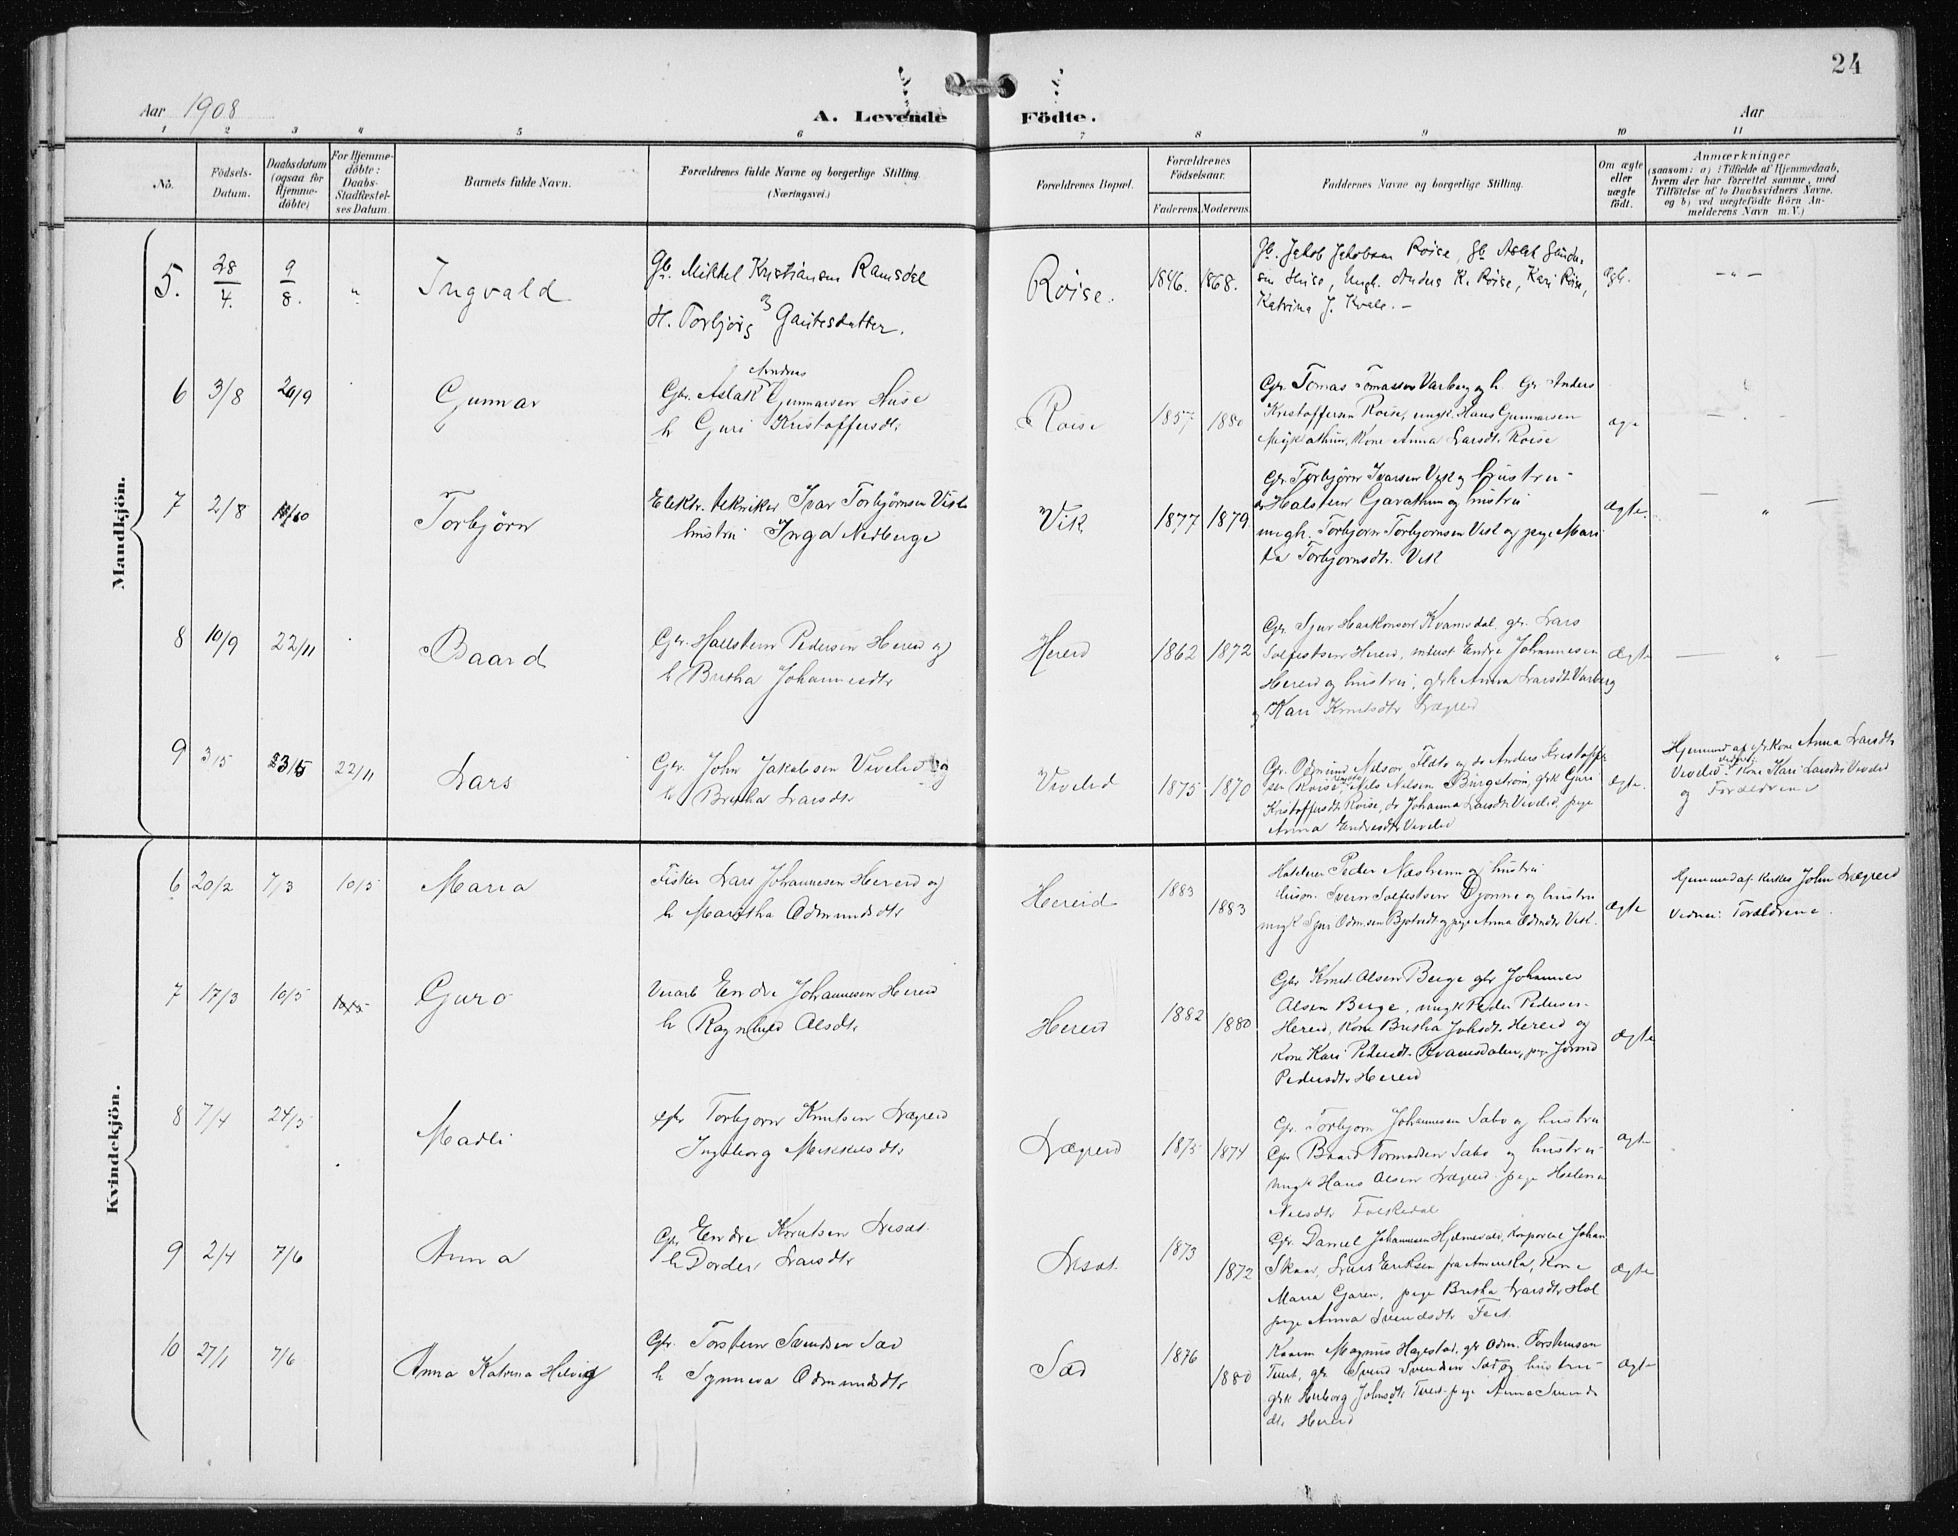 24
Aar 1908
A. Levende Födte.
Aar
1 2 3 4 5 6 7 8 9 10 11
No.
Födsels-Datum.
Daabsdatum (ogsaa for Hjemme-döbte)
For Hjemme-döbte: Daabs-Stadfæstel-ses Datum.
Barnets fulde Navn.
Forældrenes fulde Navne og borgerlige Stilling.
(Næringsvei.)
Forældrenes Bopæl.
Forældrenes Födselsaar.
Faderens. Moderens.
Faddernes Navne og borgerlige Stilling.
Om ægte eller uægte födt.
Anmærkninger
(saasom: a) i Tilfælde af Hjemmedaab,
hvem der har forrettet samme, med
Tilföielse af to Daabsvidners Navne,
og b) ved uægtefödte Börn An-
melderens Navn m. V.)
Mandkjön.
5. 28/4. 9/8. " Ingvald
Gb. Mikkel Kristiansen Ramsdal
H. Torbjörg Gautesdatter.
Röise. 1846. 1868.
Gb. Jakob Jakobsen Röise, Gb. Aslak Gunnar-
sen Huse, Ungk. Anders K. Röise, Kari Röise,
Katrina J. Kvale. –
– " –
6 3/8 20/9 Gunnar
Andres
Gbr. Aslak Gunnarsen Huse
h Guri Kristoffersdtr
Röise 1857 1880
Gbr Tomas Tomassen Varberg og h. Gr Anders
Kristoffersen Röise, ungk. Hans Gunnarsen
Myklathun, Kone Anna Larsdtr Röise
ægte
7 2/8 Torbjörn
Elektr. tekniker Ivar Torbjörnsen Vik
hustru Inga Nedberge
Vik 1877 1879
Gbr Torbjörn Ivarsen Vik og hustru
Halstein Garathun og hustru
ungk. Torbjörn Torbjörnsen Vik og pige Mari
ta Torbjörnsdtr. Vik
ægte.
8 10/9 22/11 Baard
Gbr. Hallstein Pedersen Hereid og
h Britha Johannesdtr
Hereid 1862 1872
Gbr. Sjur Haakonsen Kvamsdal, gbr. Lars
Solfestsen Hereid, Endre Johannesen
Hereid og hustru, Anna Larsdtr Varberg
og Kari Knutsdtr Lægreid
Ægte
9 3/5 22/11 Lars
Gbr. John Jakobsen Vivelid og
h Britha Larsdtr
Vivelid 1875 1870
Gbr. Odmund Nelson Flato og Anders Kristoffer
sen Röise, Nils Nilsen Burgström, Guri
Kristoffersdtr Röise, Johanna Larsdtr Vivelid, pige
Anna Endresdtr Vivelid
ægte.
Hjemmed af Kone Anna Larsdtr
Vivelid. Kone Kari Larsdtr Viveid
og Forældrene
Kvindekjön.
6 20/2 7/3 10/5 Maria
Fisker Lars Johannesen Hereid og
h Maritha Odmundsdtr
Hereid 1883 1883
Peder Næsheim og hustru
Husm. Svein Solfestsen Djönne og hustru
ungk Sjur Odmsen Bjotveit og pige Anna Odmdtr Vik.
ægte
Hjemmed af John Lægreid
Vidner: Forældrene.
7 17/3 10/5 Guro
Endre Johannesen Hereid
h Ragnhild Olsdtr
Hereid 1882 1880
Gbr Knut Olsen Berge gbr Johannes
Olsen Berge, ungk Peder Pedersen
Hereid, Kone Britha Johsdtr Hereid og
Kone Kari Pedersdtr Kvamsdalen, pige
Pedersdtr Hereid
ægte
8 7/4 24/5 Madli
Gbr Torbjorn Knutsen Lægreid
Ingeborg Mikkelsdtr
Lægreid 1875 1874
Gbr. Torbjorn Johannesen Sabo og hustru
Gbr Baard Tormodsen Sabo og hustru
ungk Hans Olsen Lægreid pige Helena
Nilsdtr Folkedal
ægte
9 2/4 7/6 Anna
Gbr Endre Knutsen Lisæt.
h Dordei Larsdtr
Lisæt. 1873 1872
Gbr. Daniel Johannesen Hjelmevold, Korporal Johan
Skaar, Lars Eriksen fra Amerika, Kone
Maria Garen, pige Britha Larsdtr Hol
pige Anna Svendsdtr Feet
Ægte
10 27/1 7/6 Anna Katrina Helvig
Gbr. Torstein Svendsen Sæd
h Synneva Odmundsdtr
Sæd 1876 1880
Magnus Hagestad, gbr Odm. Torsteinsen
Tveit, gbr Svend Svendsen Sæd og hustru
Herborg Johnsdtr Tveit pige Anna Svends
dtr Hereid
ægte